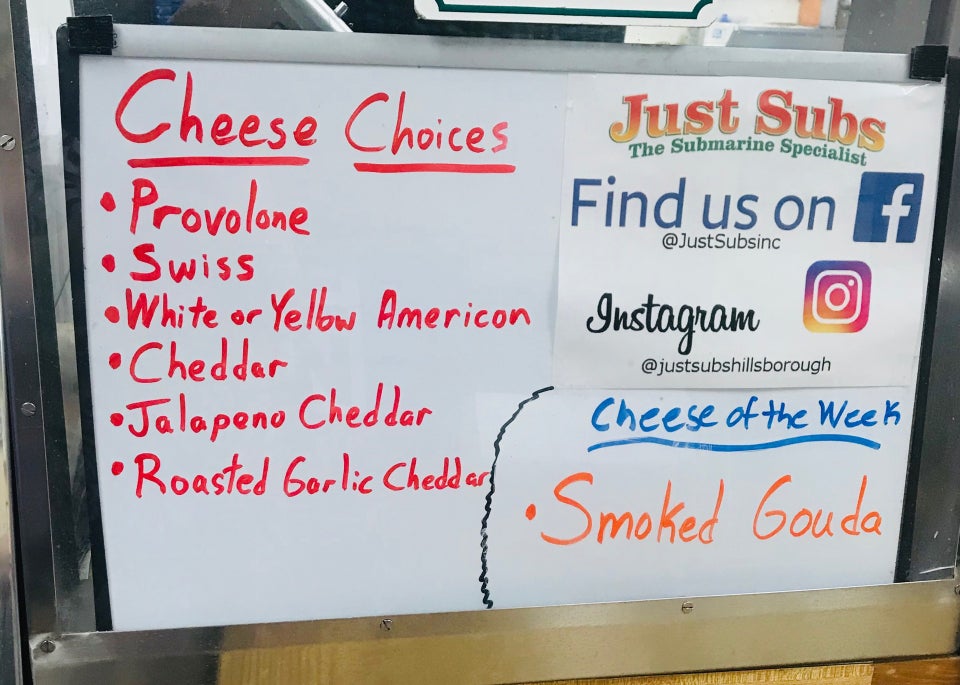 Cheese Choices
• Provolone
• Swiss
• White or Yellow American
• Cheddar
• Jalapeno Cheddar
• Roasted Garlic Cheddar
Just Subs
The Submarine Specialist
Find us on f
@JustSubsinc
Instagram
@justsubshillsborough
Cheese of the Week
• Smoked Gouda